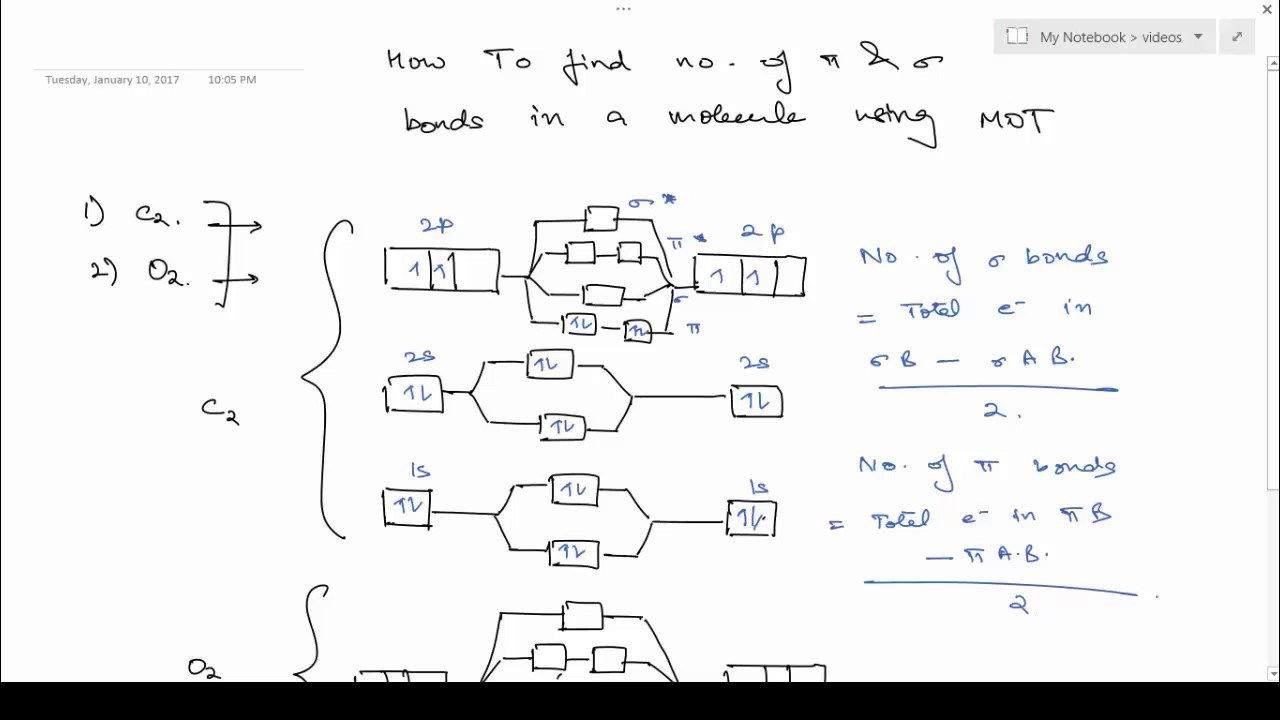 My Notebook > videos
Tuesday, January 10, 2017 10:05 PM
How To find no. of π & σ
bonds in a molecule using MOT
1) C₂.
2) O₂.
C₂
2p
σ*
π*
2p
1 1
1 1
σ
1L
1L
π
2s
1L
2s
1L
1L
1L
1s
1L
1s
1L
1L
1L
No. of σ bonds
= Total e⁻ in
σ B – σ A B.
2.
No. of π bonds
= Total e⁻ in π B
– π A.B.
2
O₂